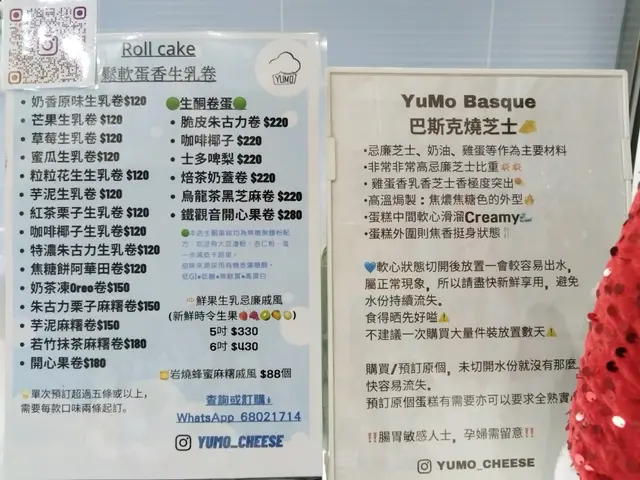 Roll cake
鬆軟蛋香生乳卷
YUMO
奶香原味生乳卷$120
芒果生乳卷 $120
草莓生乳卷 $120
蜜瓜生乳卷 $120
粒粒花生生乳卷 $120
芋泥生乳卷 $120
紅茶栗子生乳卷 $120
咖啡椰子生乳卷 $120
特濃朱古力生乳卷 $120
焦糖餅阿華田卷$120
奶茶凍Oreo卷$150
朱古力栗子麻糬卷$150
芋泥麻糬卷$150
若竹抹茶麻糬卷$180
開心果卷$180
單次預訂超過五條或以上，
需要每款口味兩條起訂。
生酮卷蛋
脆皮朱古力卷 $220
咖啡椰子 $220
士多啤梨 $220
焙茶奶蓋卷 $220
烏龍茶黑芝麻卷 $220
鐵觀音開心果卷 $280
低GI●低醣●無麩質●高蛋白
鮮果生乳忌廉戚風
(新鮮時令生果)
5吋 $330
6吋 $430
岩燒蜂蜜麻糬戚風 $88個
查詢或訂購
WhatsApp 68021714
YUMO_CHEESE
YuMo Basque
巴斯克燒芝士
•忌廉芝士、奶油、雞蛋等作為主要材料
•非常非常高忌廉芝士比重
•雞蛋香乳香芝士香極度突出
•高溫焗製：焦燶焦糖色的外型
•蛋糕中間軟心滑溜Creamy
•蛋糕外圍則焦香挺身狀態
軟心狀態切開後放置一會較容易出水，
屬正常現象，所以請盡快新鮮享用，避免
水份持續流失。
食得晒先好嗌
不建議一次購買大量件裝放置數天
購買/預訂原個，未切開水份就沒有那麼
快容易流失。
預訂原個蛋糕有需要亦可以要求全熟實
腸胃敏感人士，孕婦需留意
YUMO_CHEESE